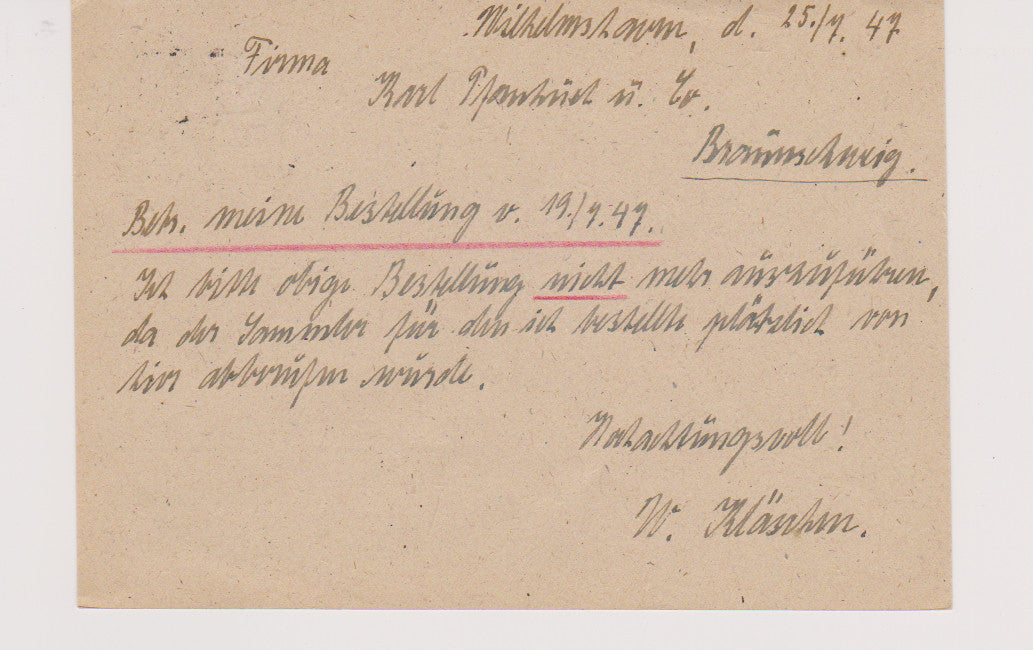 Wilhelmshaven, d. 25./7. 47
Firma
Karl Pfankuch u. Co.
Braunschweig.
Betr. meine Bestellung v. 19./7. 47.
Ich bitte obige Bestellung nicht mehr auszuführen,
da der Sammler für den ich bestellte plötzlich von
hier abberufen wurde.
Hochachtungsvoll!
W. Kläschen.